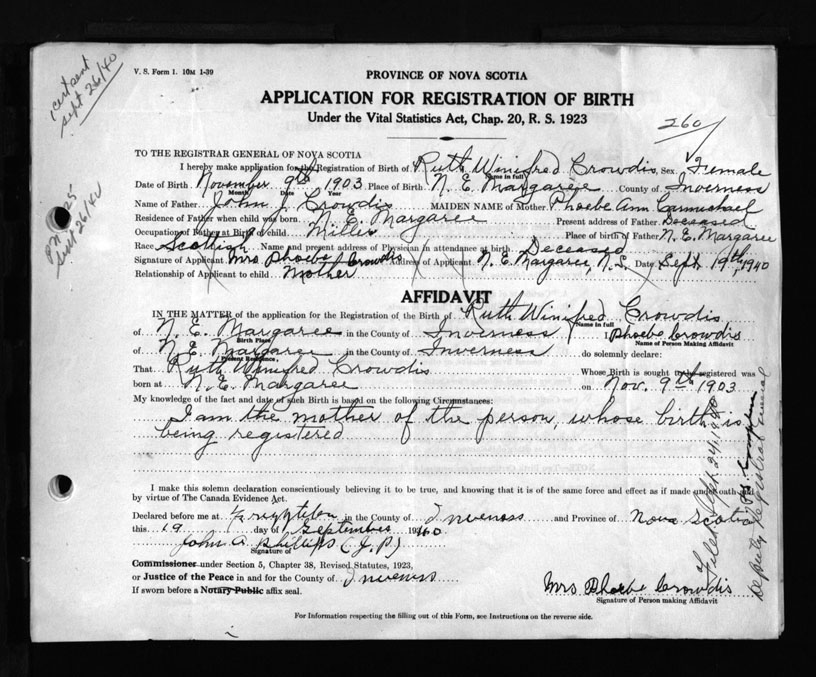 cert sent
Sept 26/40
V. S. Form 1. 10M 1-39
PROVINCE OF NOVA SCOTIA
APPLICATION FOR REGISTRATION OF BIRTH
Under the Vital Statistics Act, Chap. 20, R. S. 1923
260
TO THE REGISTRAR GENERAL OF NOVA SCOTIA
I hereby make application for the Registration of Birth of Ruth Winifred Crowdis Sex Female
Name in full
Date of Birth November 9th 1903 Place of Birth N. E. Margaree County of Inverness
Month Date Year
Name of Father John J. Crowdis MAIDEN NAME of Mother Phoebe Ann Carmichael
Residence of Father when child was born N. E. Margaree Present address of Father Deceased
Occupation of Father at Birth of child Miller Place of birth of Father N. E. Margaree
Race Scottish Name and present address of Physician in attendance at birth Deceased
Signature of Applicant Mrs Phoebe Crowdis Address of Applicant N. E. Margaree, N.S. Date Sept 19th, 1940
Relationship of Applicant to child Mother
Sept 26/40
AFFIDAVIT
IN THE MATTER of the application for the Registration of the Birth of Ruth Winifred Crowdis
Name in full
of N. E. Margaree in the County of Inverness I, Phoebe Crowdis
Birth Place Name of Person Making Affidavit
of N. E. Margaree in the County of Inverness do solemnly declare:
Present Residence,
That Ruth Winifred Crowdis Whose Birth is sought to be registered was
born at N. E. Margaree on Nov. 9th 1903
My knowledge of the fact and date of such Birth is based on the following Circumstances:
I am the mother of the person, whose birth is
being registered
I make this solemn declaration conscientiously believing it to be true, and knowing that it is of the same force and effect as if made under oath and
by virtue of The Canada Evidence Act.
Declared before me at in the County of Inverness and Province of Nova Scotia
this 19 day of September 1940
John A Phillips (J.P)
Signature of
Commissioner under Section 5, Chapter 38, Revised Statutes, 1923,
or Justice of the Peace in and for the County of Inverness
If sworn before a Notary Public affix seal.
Mrs Phoebe Crowdis
Signature of Person making Affidavit
For Information respecting the filling out of this Form, see Instructions on the reverse side.
Filed Sept 24, 1940
Deputy Registrar General